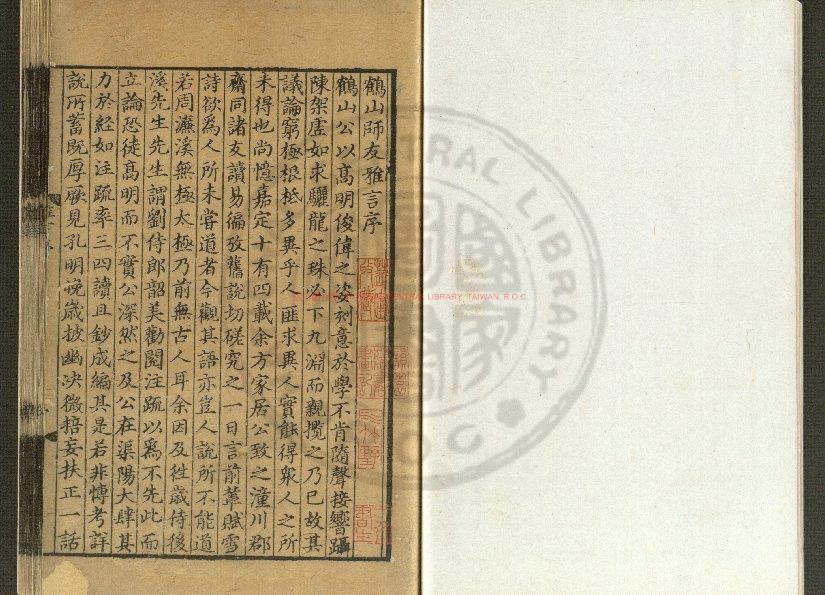 鶴山師友雅言序
鶴山公以高明俊偉之姿刻意於學不肯隨聲接響躡
陳架虛如求驪龍之珠必下九淵而親攬之乃已故其
議論窮極根柢多異乎人匪求異人實能得衆人之所
未得也尚憶嘉定十有四載余方家居公致之潼川郡
齋同諸友讀易徧攷舊說切磋究之一日言前輩賦雪
詩欲爲人所未嘗道者今觀其語亦豈人說所不能道
若周濂溪無極太極乃前無古人耳余因及徃歲侍後
溪先生先生謂劉侍郎韶美勸閱注疏以爲不先此而
立論恐徒高明而不實公深然之及公在渠陽大肆其
力於經如注疏率三四讀且鈔成編其是若非慱考詳
說所蓄既厚厥見孔明晚歲披幽決微掊妄扶正一話
CENTRAL LIBRARY, TAIWAN, R.O.C.
CENTRAL LIBRARY
ROC